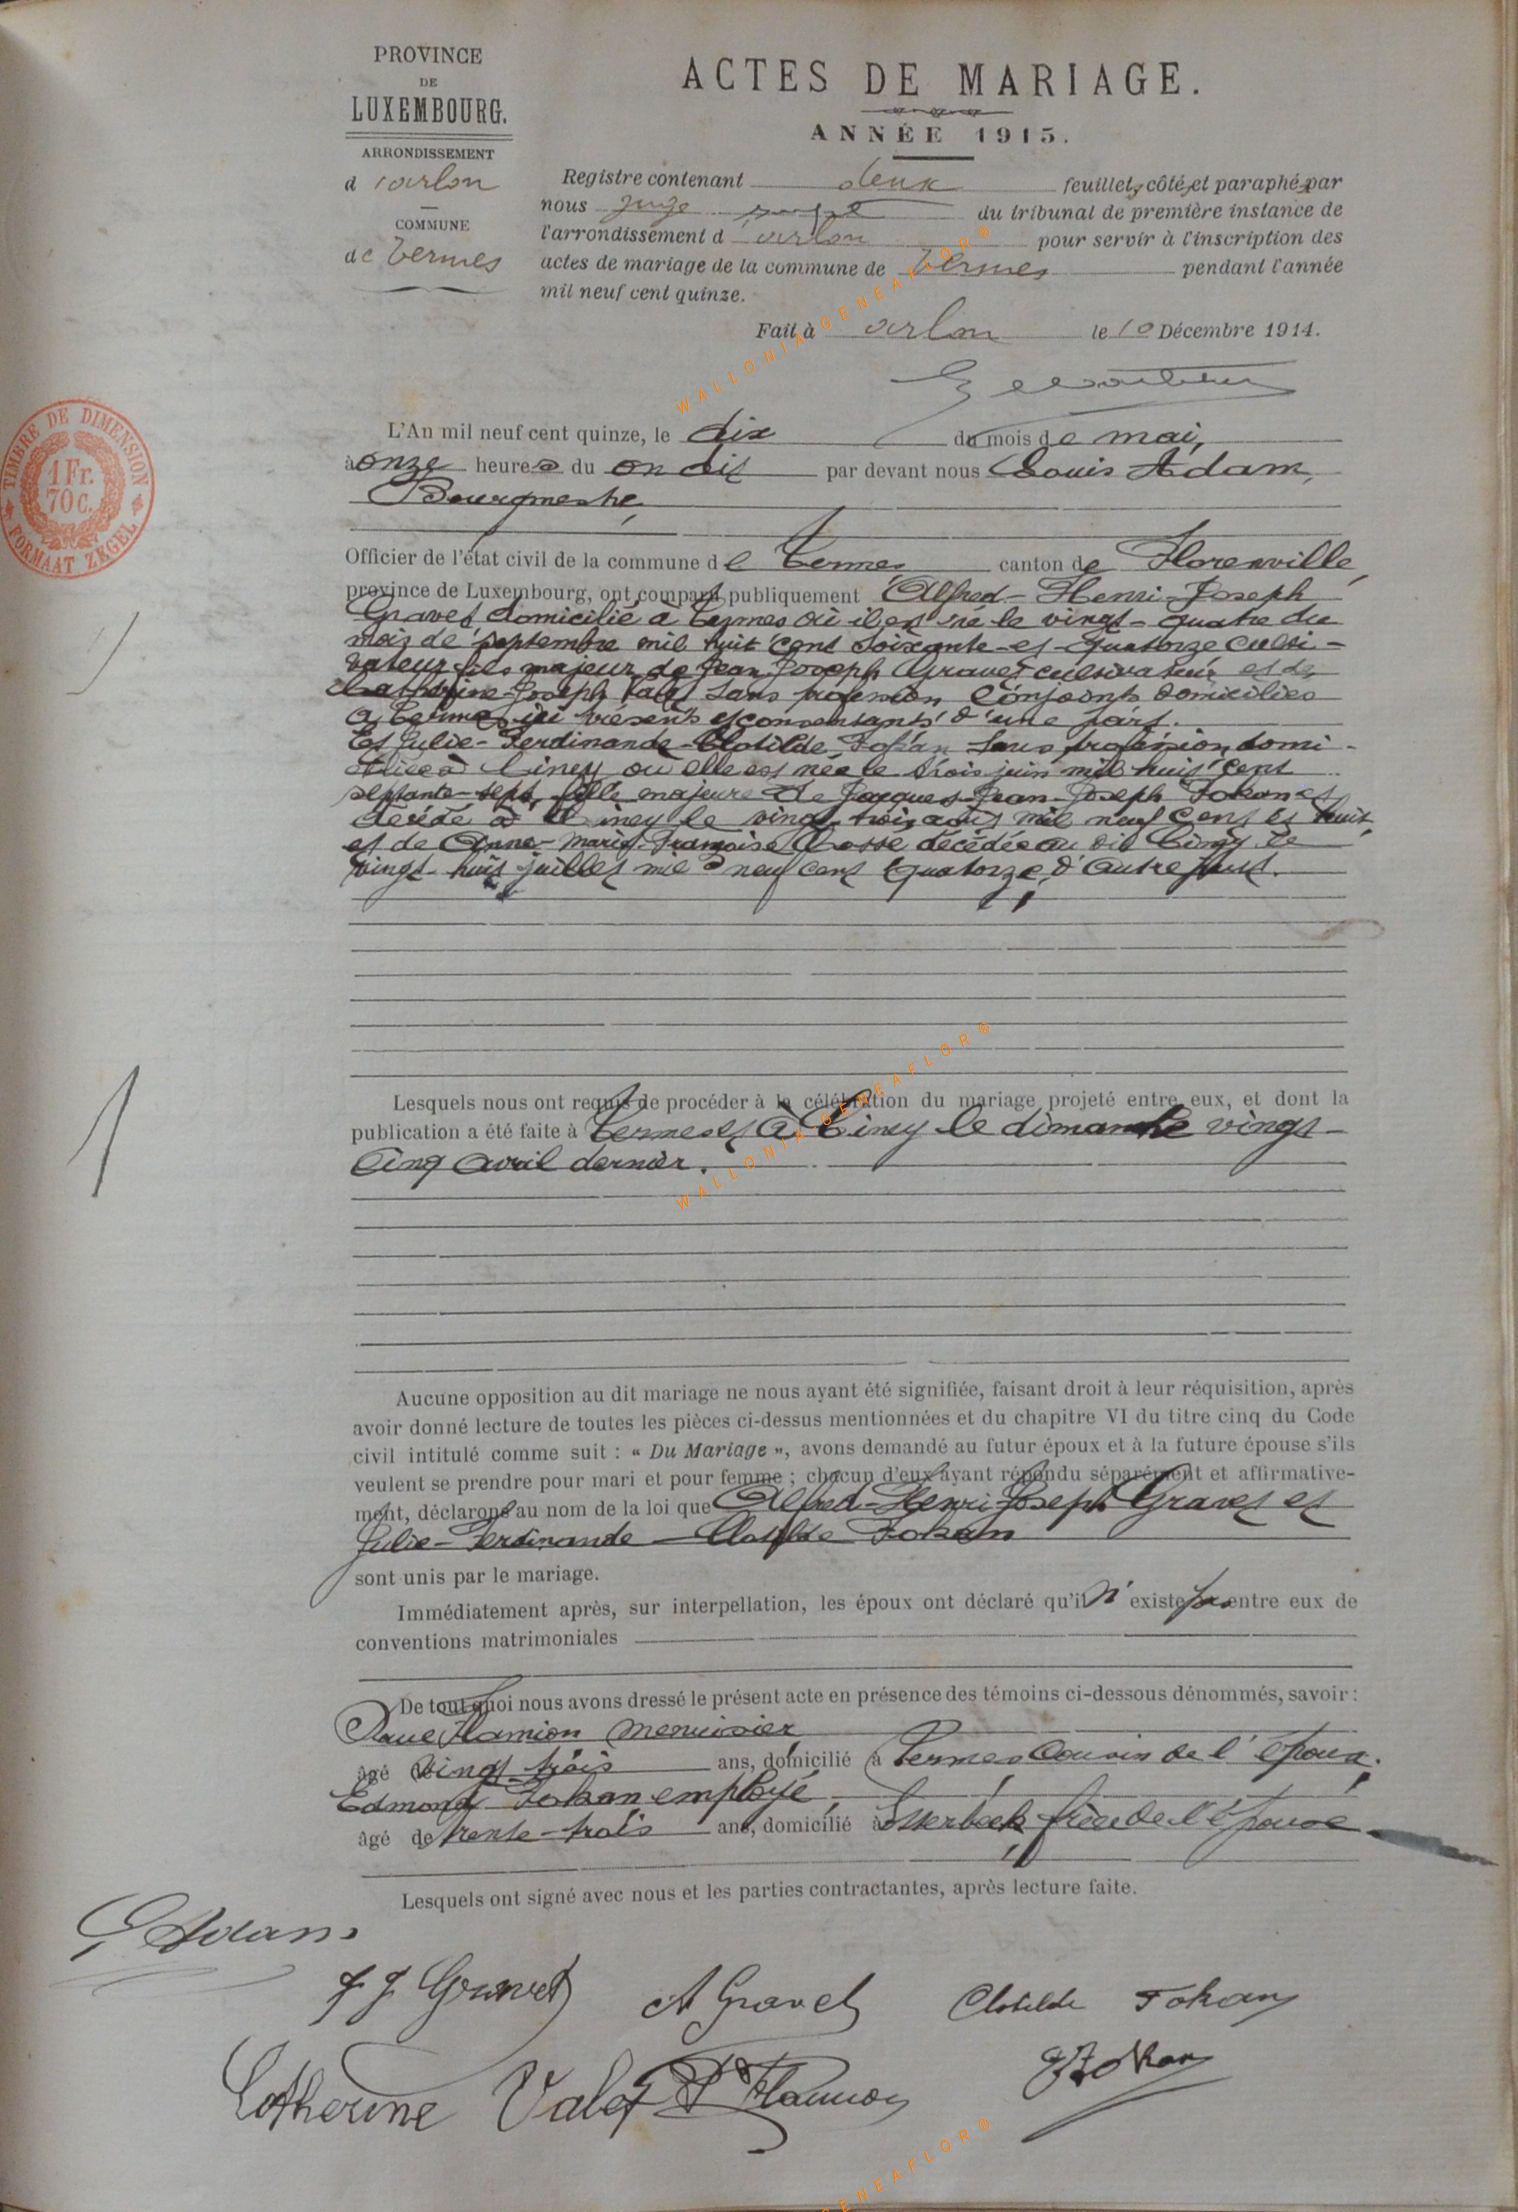 PROVINCE
DE
LUXEMBOURG.
ARRONDISSEMENT
d'arlon
COMMUNE
de Termes
ACTES DE MARIAGE.
ANNÉE 1915.
Registre contenant deux feuillets, côtés et paraphés par
nous juge du tribunal de première instance de
l'arrondissement d'arlon pour servir à l'inscription des
actes de mariage de la commune de Termes pendant l'année
mil neuf cent quinze.
Fait à arlon le 10 Décembre 1914.
TIMBRE DE DIMENSION
1 Fr.
70 c.
FORMAAT ZEGEL
L'An mil neuf cent quinze, le dix du mois de mai,
à onze heures du on dit par devant nous Louis Adam,
Bourgmestre,
Officier de l'état civil de la commune de Termes canton de Florenville,
province de Luxembourg, ont comparu publiquement Alfred-Henri-Joseph
Gravet domicilié à Termes où il est né le vingt-quatre du
mois de septembre mil huit cent soixante-et-quatorze culti-
vateur fils majeur de Jean-Joseph Gravet cultivateur et de
Catherine-Joseph Valet sans profession Conjoints domiciliés
à Termes ici présents et consentants d'une part.
Et Julie-Ferdinande-Clotilde Fokan sans profession, domi-
ciliée à Ciney où elle est née le trois juin mil huit cent
septante-sept, fille majeure de Jacques-Jean-Joseph Fokan
décédé à Ciney le vingt-trois août mil neuf cent et huit,
et de Anne-Marie-Françoise décédée au dit Ciney le
vingt-huit juillet mil neuf cent quatorze, d'autre part.
Lesquels nous ont requis de procéder à la célébration du mariage projeté entre eux, et dont la
publication a été faite à Termes et à Ciney le dimanche vingt-
cinq avril dernier.
Aucune opposition au dit mariage ne nous ayant été signifiée, faisant droit à leur réquisition, après
avoir donné lecture de toutes les pièces ci-dessus mentionnées et du chapitre VI du titre cinq du Code
civil intitulé comme suit : « Du Mariage », avons demandé au futur époux et à la future épouse s'ils
veulent se prendre pour mari et pour femme ; chacun d'eux ayant répondu séparément et affirmative-
ment, déclarons au nom de la loi que Alfred-Henri-Joseph Gravet et
Julie-Ferdinande-Clotilde Fokan
sont unis par le mariage.
Immédiatement après, sur interpellation, les époux ont déclaré qu'il n'existe pas entre eux de
conventions matrimoniales
De tout quoi nous avons dressé le présent acte en présence des témoins ci-dessous dénommés, savoir :
Paul Flamion menuisier,
âgé de vingt-trois ans, domicilié à Termes, cousin de l'époux.
Edmond Fokan employé,
âgé de trente-trois ans, domicilié à Etterbeek, frère de l'épouse
Lesquels ont signé avec nous et les parties contractantes, après lecture faite.
L Adam
J J Gravet A Gravet Clotilde Fokan
Catherine Valet P Flamion E Fokan
1
WALLONIA GENEAFLOR®
WALLONIA GENEAFLOR®
GENEAFLOR®